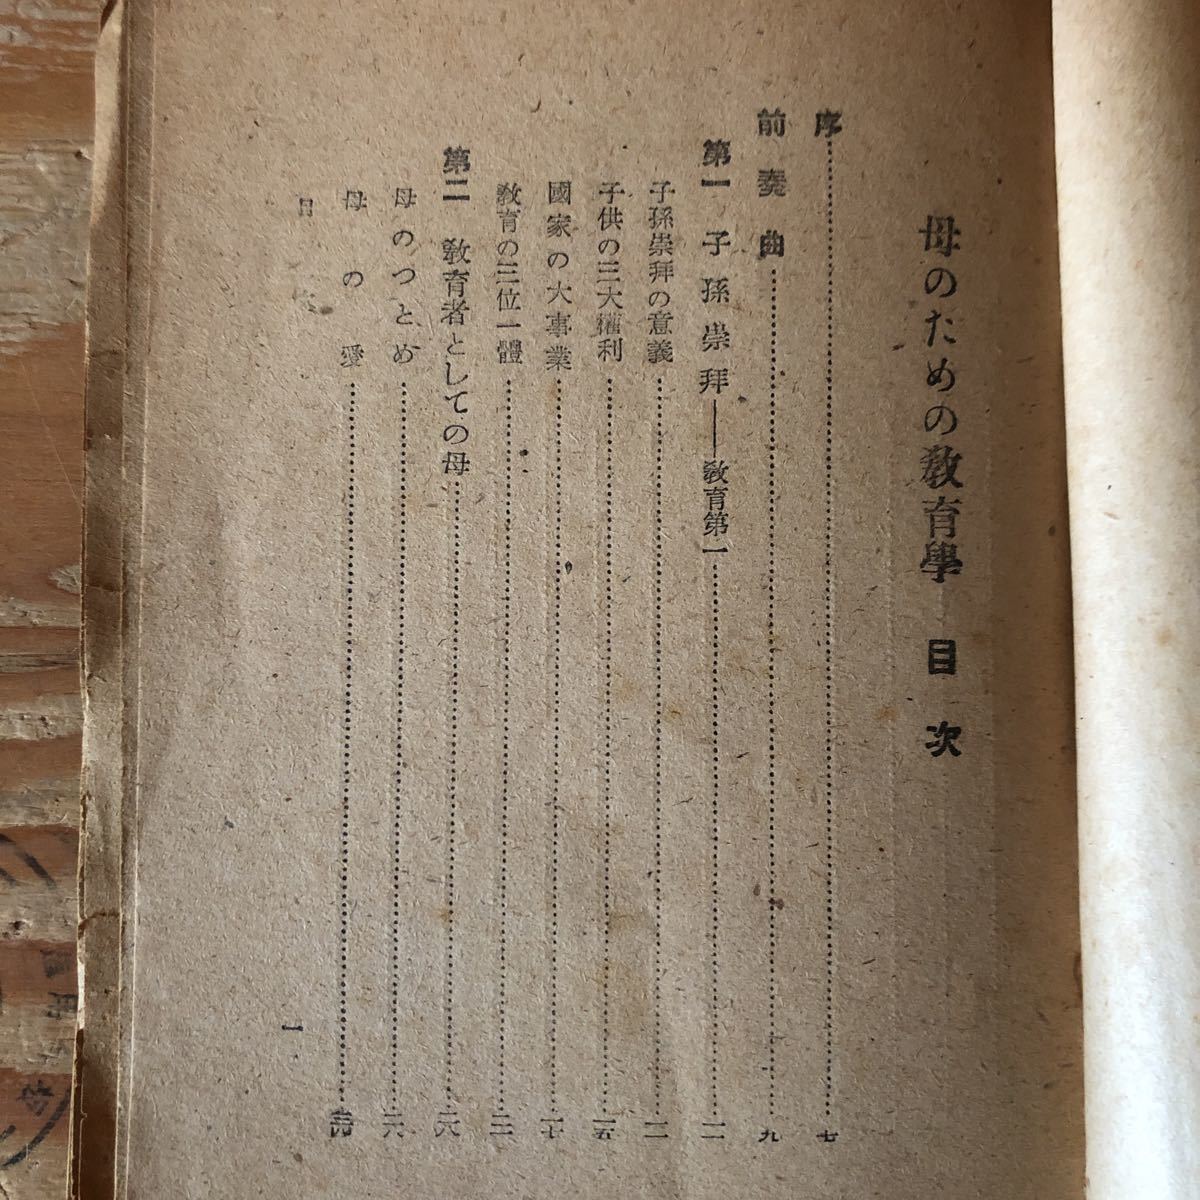 母のための敎育學 目次
序……七
前奏曲……九
第一 子孫崇拜――敎育第一……一一
子孫崇拜の意義……一一
子供の三大權利……一五
國家の大事業……一七
敎育の三位一體……二一
第二 敎育者としての母……二六
母のつとめ……二六
母の愛……
目
一